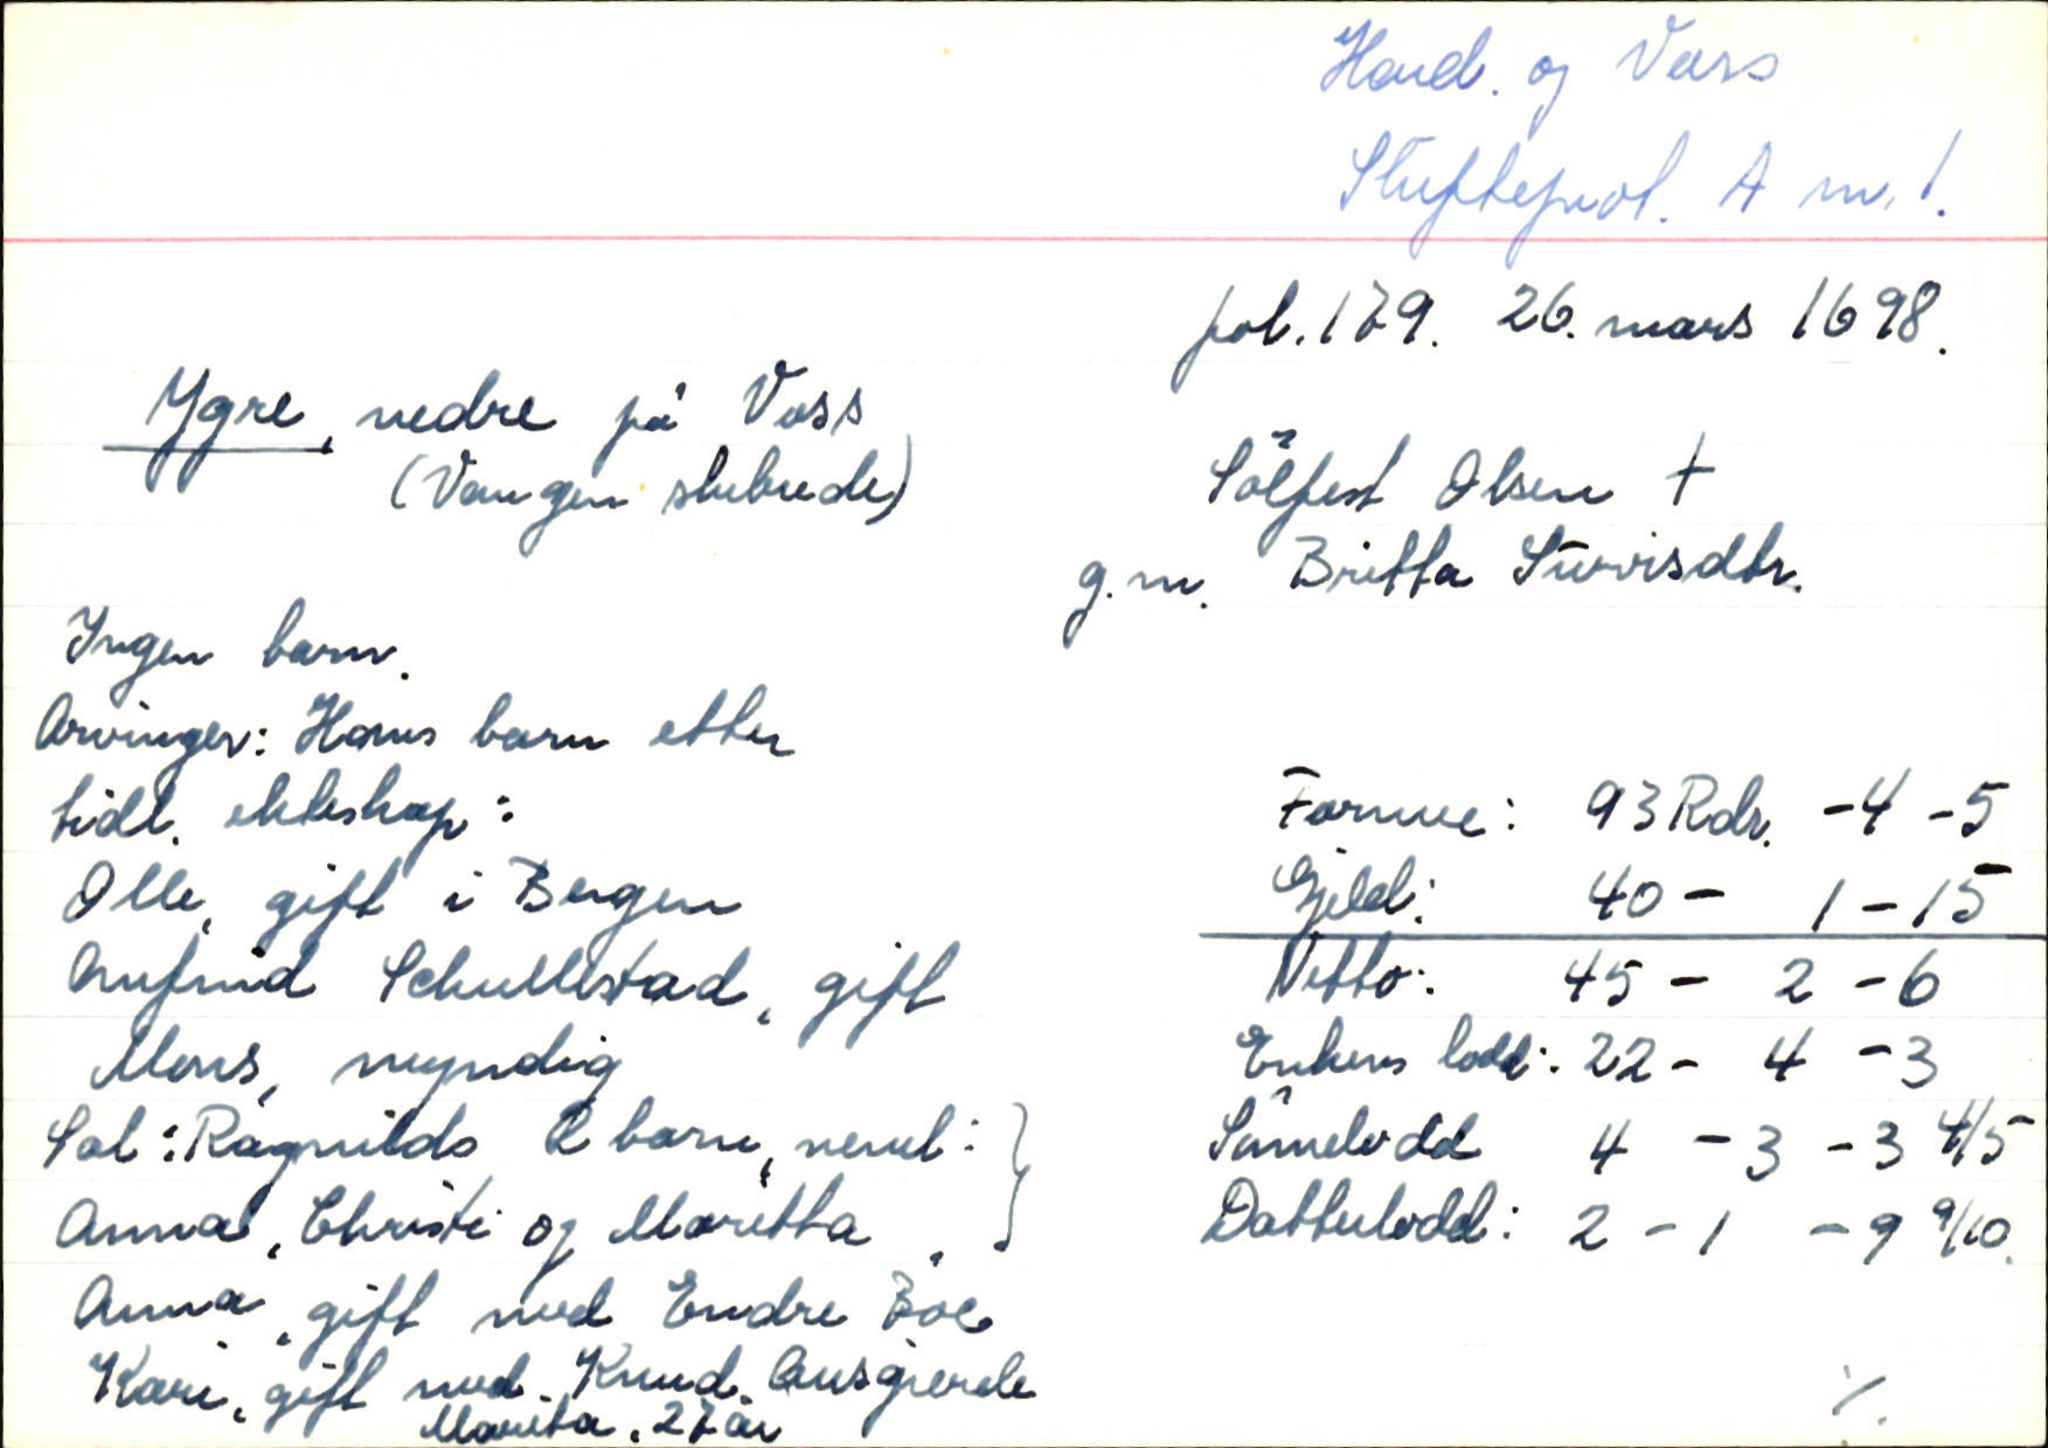 Hard. og Voss
Skifteprot. A nr. 1.
fol. 179. 26. mars 1698.
Ygre, nedre på Voss
(Vangen skibrede)
Sölfest Olsen †
g. m. Britta Siurisdtr.
Ingen barn.
Arvinger: Hans barn etter
tidl. ekteskap:
Olle, gift i Bergen
Anfind Schullestad, gift
Mons, myndig
Sal: Ragnilds 2 barn, nevnl:
Anna, Christi og Maritta.
Anna, gift med Endre Boe
Kari, gift med Knud Gusgierde
Marita, 27 år
Formue: 93 Rdr. - 4 - 5
Gjeld: 40 - 1 - 15
Netto: 45 - 2 - 6
Enkens lodd: 22 - 4 - 3
Sönnelodd 4 - 3 - 3 4/5
Datterlodd: 2 - 1 - 9 9/10.
./.